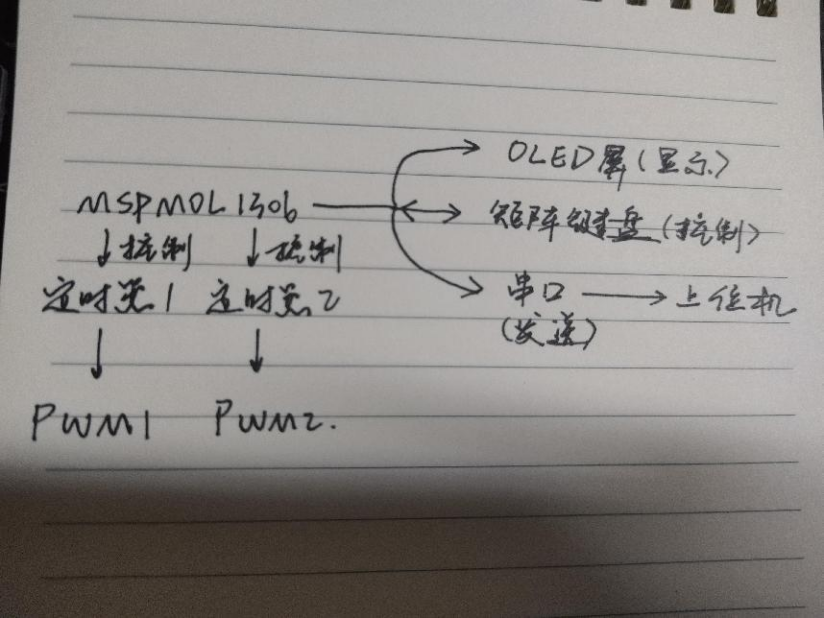 OLED屏(显示)
MSPM0L1306
矩阵键盘(控制)
控制 控制
定时器1 定时器2
串口 上位机
(发送)
PWM1 PWM2.